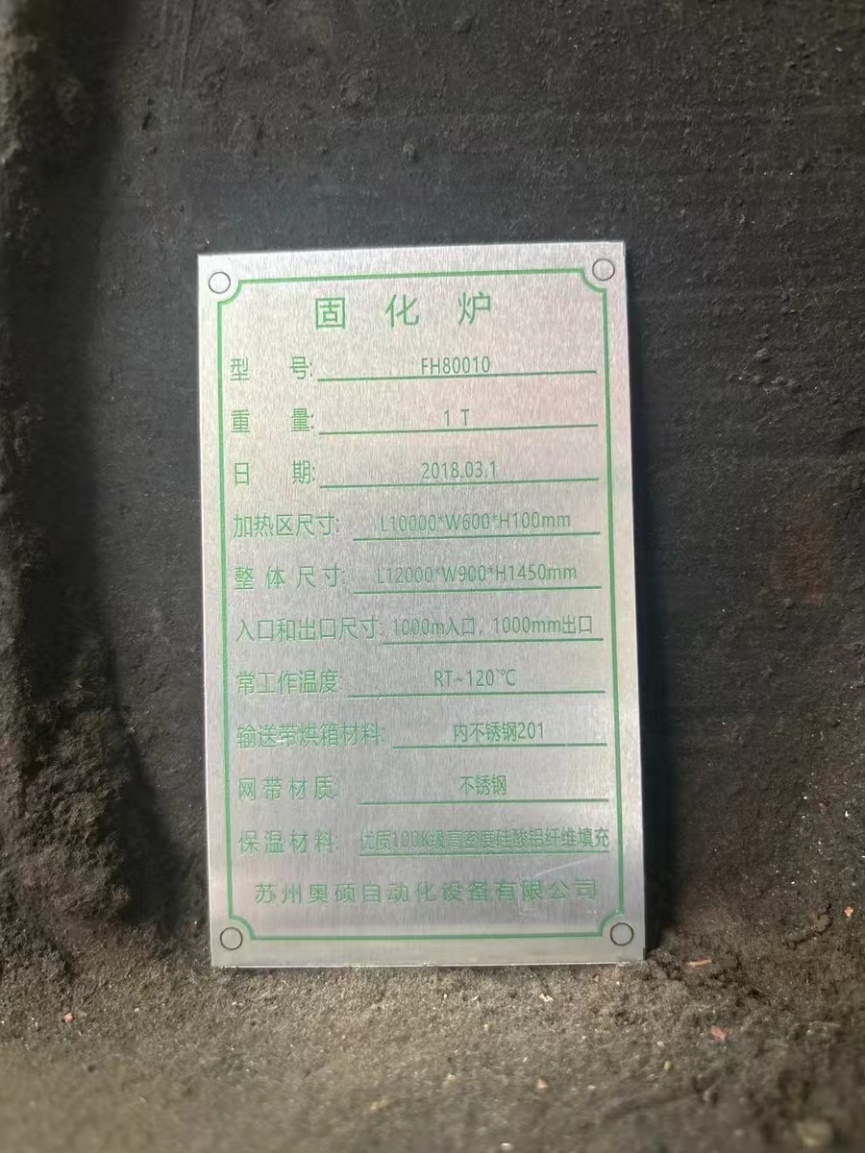 固化炉
型 号: FH80010
重 量: 1 T
日 期: 2018.03.1
加热区尺寸: L10000*W600*H100mm
整体尺寸: L12000*W900*H1450mm
入口和出口尺寸: 1000m入口，1000mm出口
常工作温度: RT~120℃
输送带烘箱材料: 内不锈钢201
网带材质: 不锈钢
保温材料: 优质100K级高密度硅酸铝纤维填充
苏州奥硕自动化设备有限公司